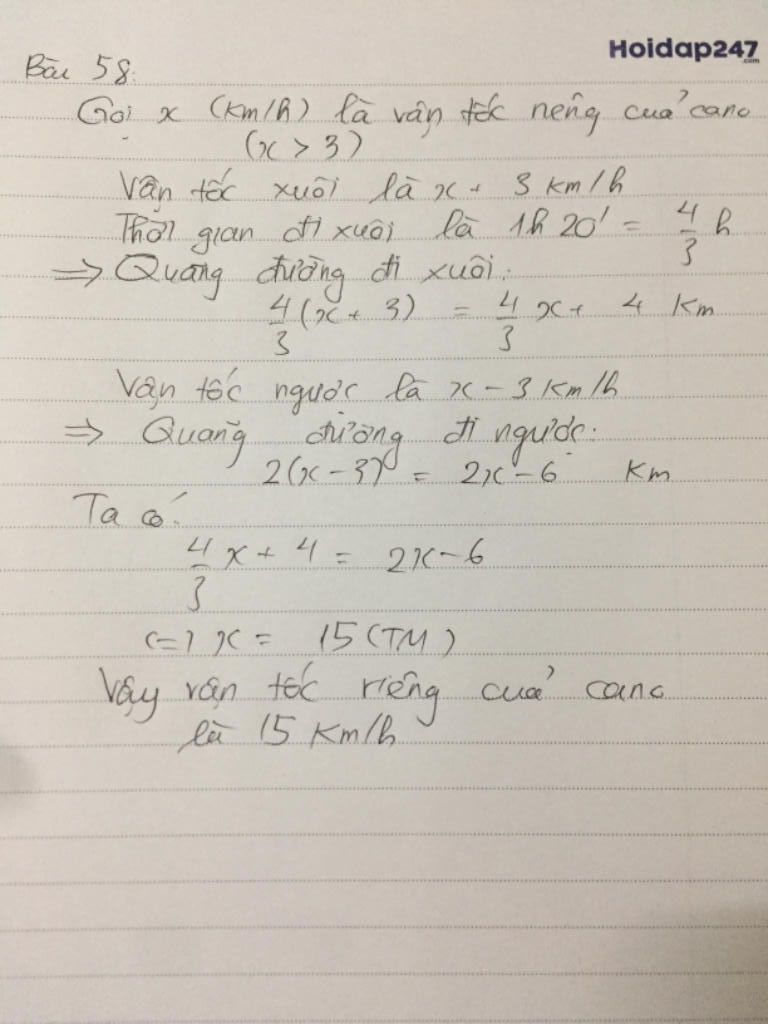 Hoidap247
.com
Bài 58:
Gọi x (km/h) là vận tốc riêng của cano
(x > 3)
Vận tốc xuôi là x + 3 km/h
Thời gian đi xuôi là 1h 20' = 4/3 h
=> Quãng đường đi xuôi:
4/3 (x + 3) = 4/3 x + 4 km
Vận tốc ngược là x - 3 km/h
=> Quãng đường đi ngược:
2(x - 3) = 2x - 6 km
Ta có:
4/3 x + 4 = 2x - 6
<=> x = 15 (TM)
Vậy vận tốc riêng của cano
là 15 km/h